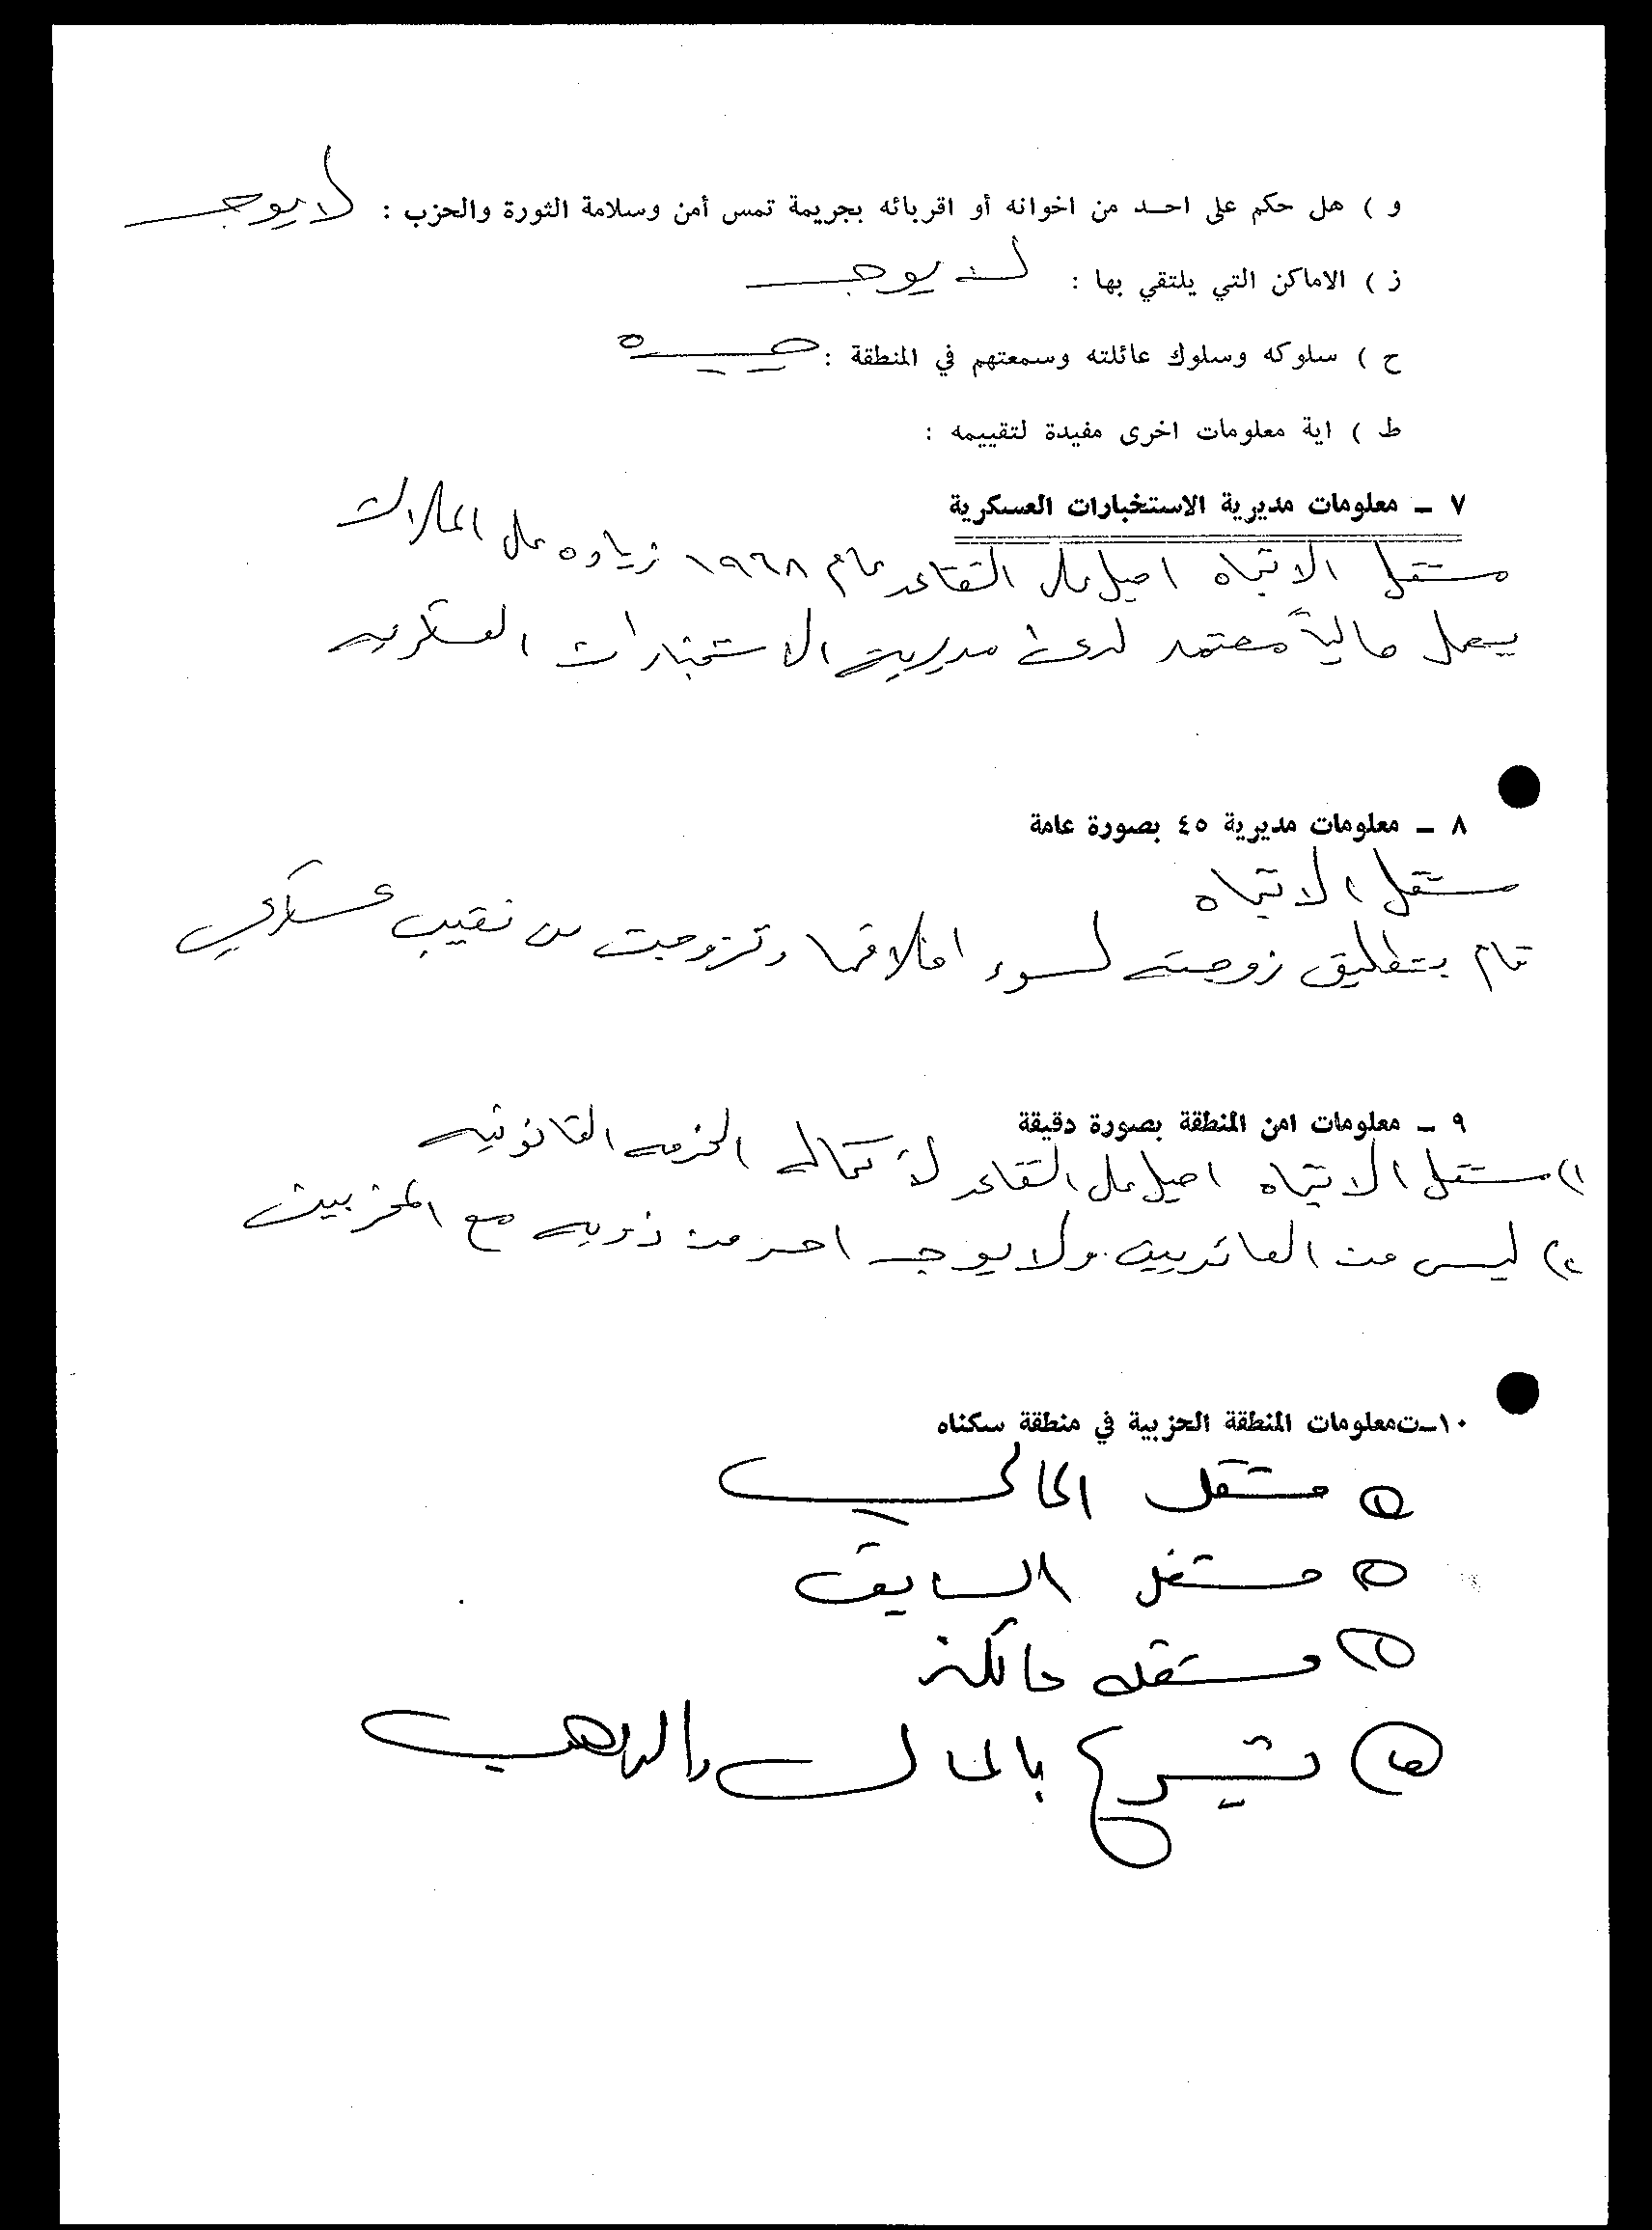 و ) هل حكم على احـد من اخوانه أو اقربائه بجريمة تمس أمن وسلامة الثورة والحزب : لا يوجد
ز ) الاماكن التي يلتقي بها : لا يوجد
ح ) سلوكه وسلوك عائلته وسمعتهم في المنطقة : جيده
ط ) اية معلومات اخرى مفيدة لتقييمه :
٧ ـ معلومات مديرية الاستخبارات العسكرية
مستقل الاتجاه احيل على التقاعد عام ١٩٦٨ زياده على الملاك
يعمل حالياً معتمد لدى مديرية الاستخبارات العسكريه
٨ ـ معلومات مديرية ٤٥ بصورة عامة
مستقل الاتجاه
قام بتطليق زوجته لسوء اخلاقها وتزوجت من نقيب عسكري
٩ ـ معلومات امن المنطقة بصورة دقيقة
١) مستقل الاتجاه احيل على التقاعد لاكماله الخدمه القانونيه
٢) ليس من العائدين ولا يوجد احد من ذويه مع المخربين
١٠ـت معلومات المنطقة الحزبية في منطقة سكناه
مستقل الحالي
مستقل السابق
مستقله عائلته
تبرع بالمال والذهب